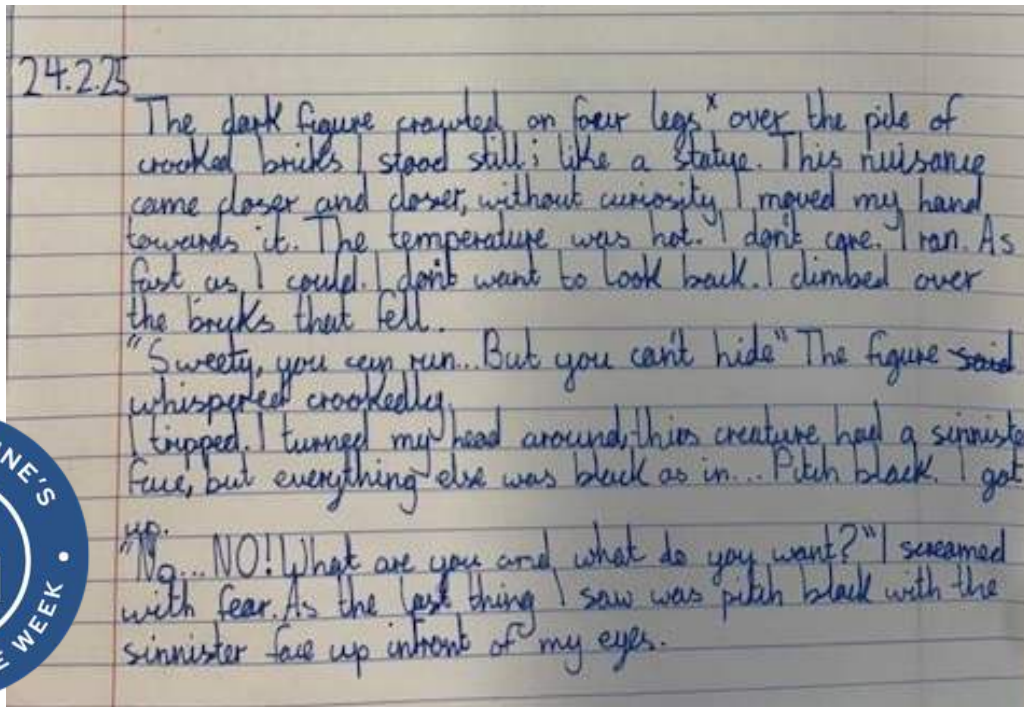 24.2.25
The dark figure crawled on four legs x over the pile of
crooked briks I stood still; like a statue. This nuisance
came closer and closer, without curiosity I moved my hand
towards it. The temperature was hot. I don't care. I ran. As
fast as I could. I don't want to look back. I climbed over
the bricks that fell.
"Sweety, you can run... But you can't hide" The figure said
whispered crookedly.
I tripped. I turned my head around, this creature had a sinniste
face, but everything else was black as in... Pitch black. I got
up.
"No... NO! What are you and what do you want?" I screamed
with fear. As the last thing I saw was pitch black with the
sinnister face up infront of my eyes.
NE'S
WEEK